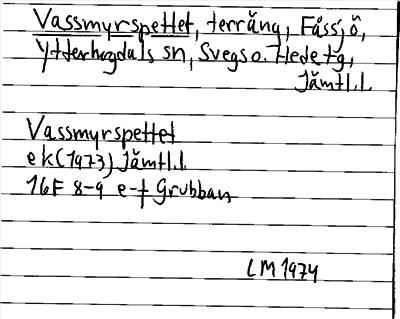 Vassmyrspettet, terräng, Fåssjö,
Ytterhogdals sn, Svegs o. Hede tg,
Jämtl.l.
Vassmyrspettet
ek (1973) Jämtl.l.
16F 8-9 e-f Grubban
LM 1974